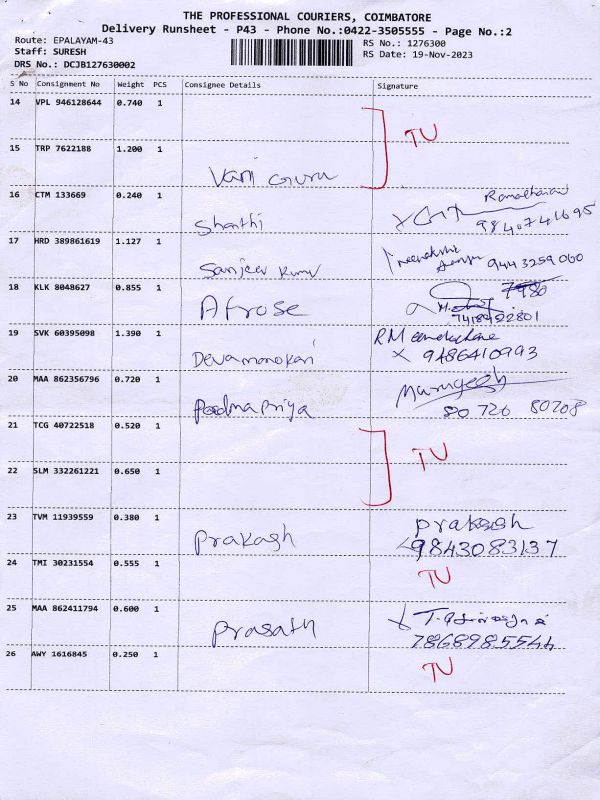 THE PROFESSIONAL COURIERS, COIMBATORE
Delivery Runsheet - P43 - Phone No.:0422-3505555 - Page No.:2
Route: EPALAYAM-43
RS No.: 1276300
Staff: SURESH
RS Date: 19-Nov-2023
DRS No.: DCJB127630002
S No Consignment No Weight PCS Consignee Details Signature
14 VPL 946128644 0.740 1
TU
15 TRP 7622188 1.200 1
Vani Guru
16 CTM 133669 0.240 1
Shanthi 9840741695
17 HRD 389861619 1.127 1
Sanjeev Kumar 9443259060
18 KLK 8048627 0.855 1
Afrose
19 SVK 60395098 1.390 1
Devamanokari 9486410993
20 MAA 862356796 0.720 1
Murugesh
Padma Priya 80 726 80208
21 TCG 40722518 0.520 1
TU
22 SLM 332261221 0.650 1
23 TVM 11939559 0.380 1
prakash
Prakash 9843083137
24 TMI 30231554 0.555 1
TU
25 MAA 862411794 0.600 1
Prasath 7868985544
26 AWY 1616845 0.250 1
TU